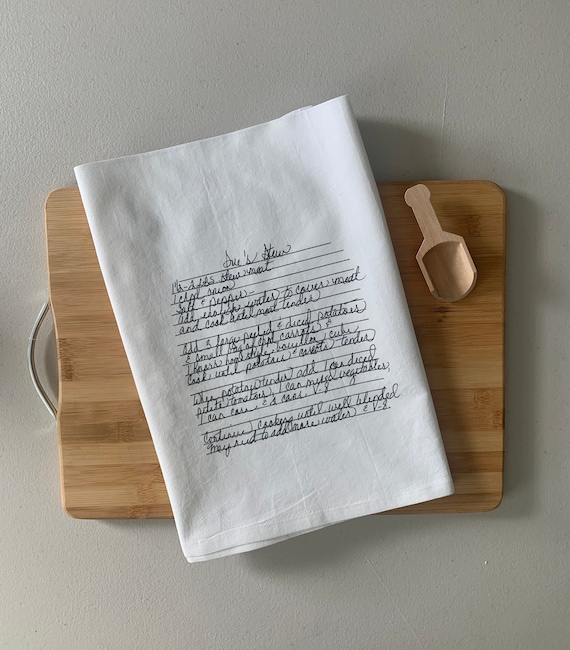 Sue's Stew
1½-2 lbs stew meat
1 chpd onion
Salt & Pepper
Add enough water to cover meat
and cook until meat tender
Add 5 large peeled & diced potatoes
& small bag of carrots &
bouillon cube
Cook until potatoes & carrots tender
When potatoes tender add 1 can diced
petite tomatoes, 1 can mixed vegetables,
1 can corn & 2 cans V-8
Continue cooking until well blended
may need to add more water & V-8